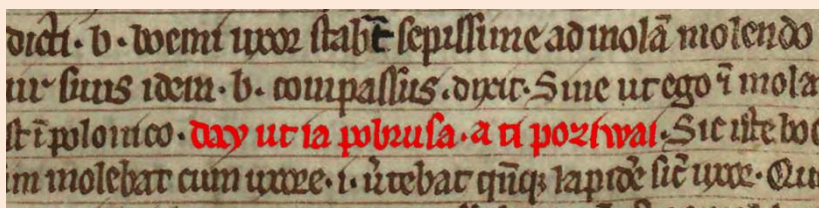 dicti · b · boemi uxor stabat sepissime ad molā molendo
ur suus idem · b · compassus · dixit · Sine ut ego ī mola
st ī polonico · day ut ia pobrusa · a ti poziwai · Sic iste bo
m molebat cum uxore · i · u̅tebat qn̄q; lapidē sic̄ uxor · Quī